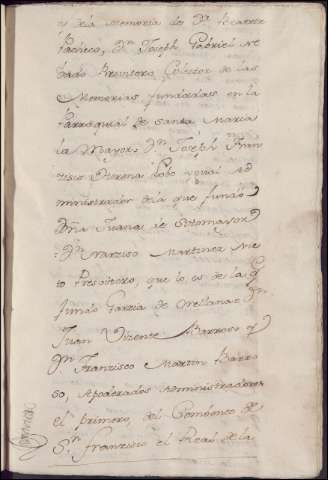 y de la Memoria de Dn
Pacheco, Dn Joseph Gabriel Ne
Presvitero Colector de las
Memorias fundadas en la
Parroquial de Santa Maria
la Mayor. Dn Joseph Fran
cisco Lobo Ad
ministrador de la que fundó
Dña Juana de Sotomayor
Dn Narziso Martinez Nie
to Presvitero, que lo es de la q
fundó Garzia de Orellana Dn
Juan Vizente Barroso y
Dn Francisco Martin Barro
so, Apoderados Administradores
el primero, del Combento de
Sn Francisco el Real de la